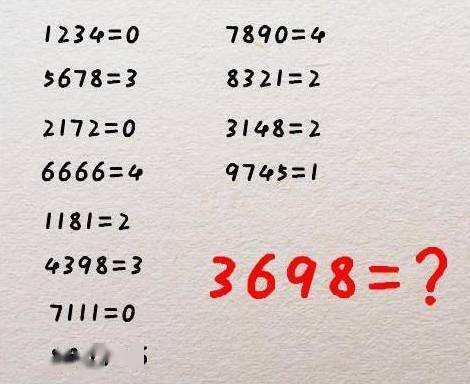 1234=0
5678=3
2172=0
6666=4
1181=2
4398=3
7111=0
7890=4
8321=2
3148=2
9745=1
3698=?